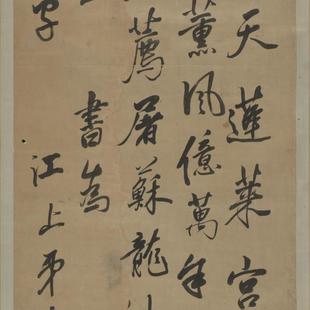 天蓬萊宮
薰風億萬年
薦屠蘇龍
書為
江上弟